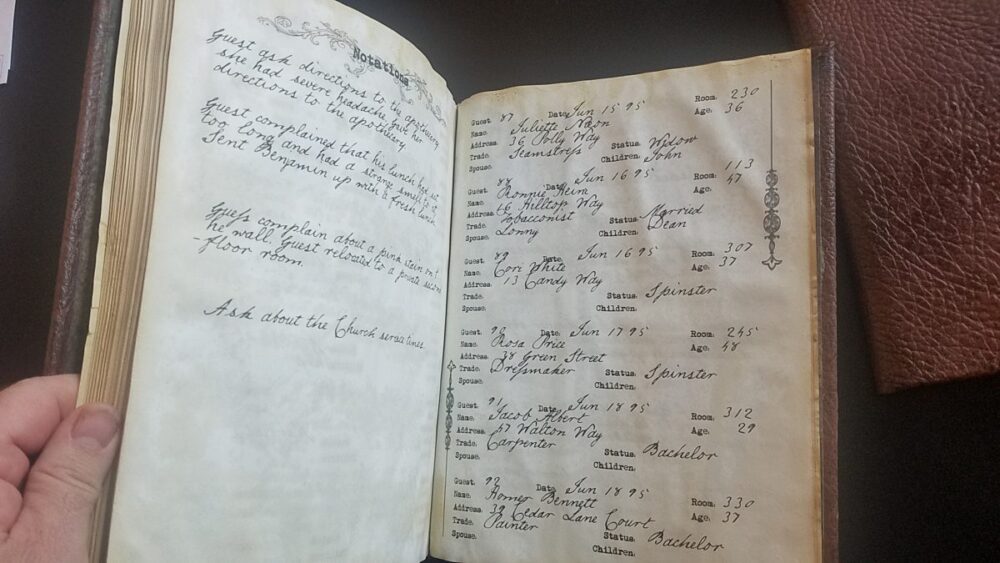 Notations
Guest ask directions to the apothecary
she had severe headache Give her
directions to the apothecary.
Guest complained that his lunch had set
too long and had a strange smell to it
Sent Benjamin up with a fresh lunch
Guess complain about a pink stain on t
he wall. Guest relocated to a private second
-floor room.
Ask about the Church
Guest. 87 Date. Jun 15 95 Room. 230
Name. Juliette Nixon Age. 36
Address. 36 Polly Way
Trade. Seamstress Status. Widow
Spouse. Children. John
Guest. 88 Date. Jun 16 95 Room. 113
Name. Ronnie Keira Age. 47
Address. 16 Hilltop Way
Trade. Tobacconist Status. Married
Spouse. Lonny Children. Dean
Guest. 89 Date. Jun 16 95 Room. 307
Name. Cori White Age. 37
Address. 13 Candy Way
Trade. Status. Spinster
Spouse. Children.
Guest. 90 Date. Jun 17 95 Room. 245
Name. Rosa Price Age. 48
Address. 38 Green Street
Trade. Dressmaker Status. Spinster
Spouse. Children.
Guest. 91 Date. Jun 18 95 Room. 312
Name. Jacob Albert Age. 29
Address. 57 Walton Way
Trade. Carpenter Status. Bachelor
Spouse. Children.
Guest. 92 Date. Jun 18 95 Room. 330
Name. Homer Bennett Age. 37
Address. 39 Cedar Lane Court
Trade. Painter Status. Bachelor
Spouse. Children.